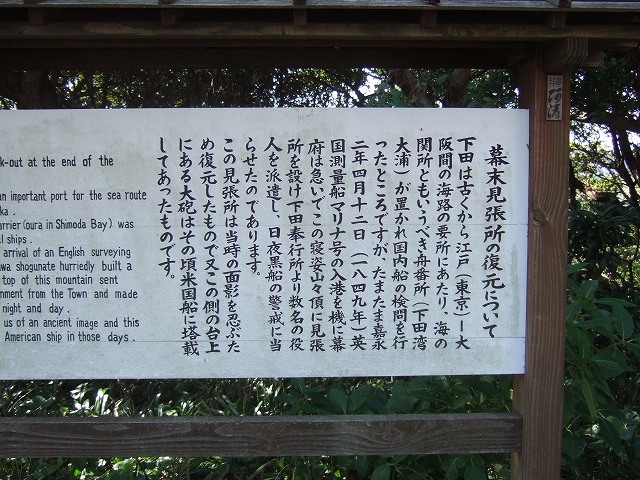 幕末見張所の復元について
下田は古くから江戸（東京）ー大
阪間の海路の要所にあたり、海の
関所ともいうべき舟番所（下田湾
大浦）が置かれ国内船の検問を行
ったところですが、たまたま嘉永
二年四月十二日（一八四九年）英
国測量船マリナ号の入港を機に幕
府は急いでこの寝姿山々頂に見張
所を設け下田奉行所より数名の役
人を派遣し、日夜黒船の警戒に当
らせたのであります。
この見張所は当時の面影を忍ぶた
め復元したもので又この側の台上
にある大砲はその頃米国船に塔載
してあったものです。
k-out at the end of the
an important port for the sea route
ka .
arrier (oura in Shimoda Bay) was
ll ships .
arrival of an English surveying
wa shogunate hurriedly built a
top of this mountain sent
nment from the Town and made
night and day .
us of an ancient image and this
American ship in those days .